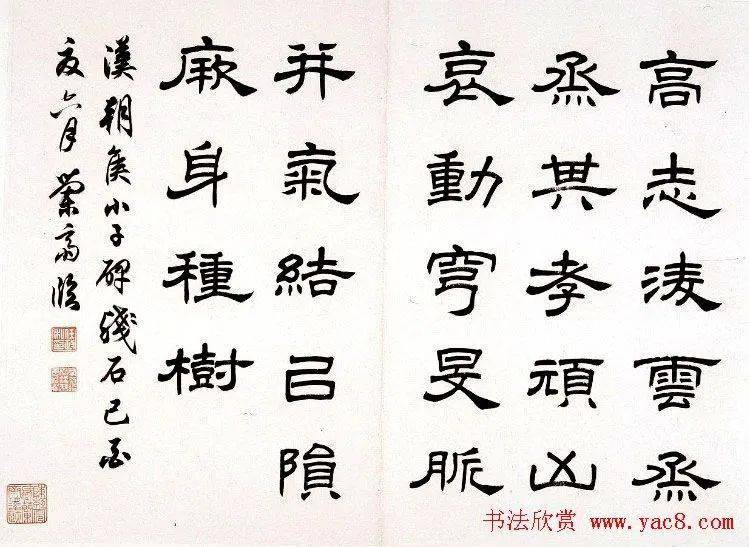 高志凌雲烝
烝其孝頑凶
哀動穹旻脈
并氣結㠯隕
厥身種樹
漢朝侯小子碑殘石己酉
夏六月臨
书法欣赏 www.yac8.com